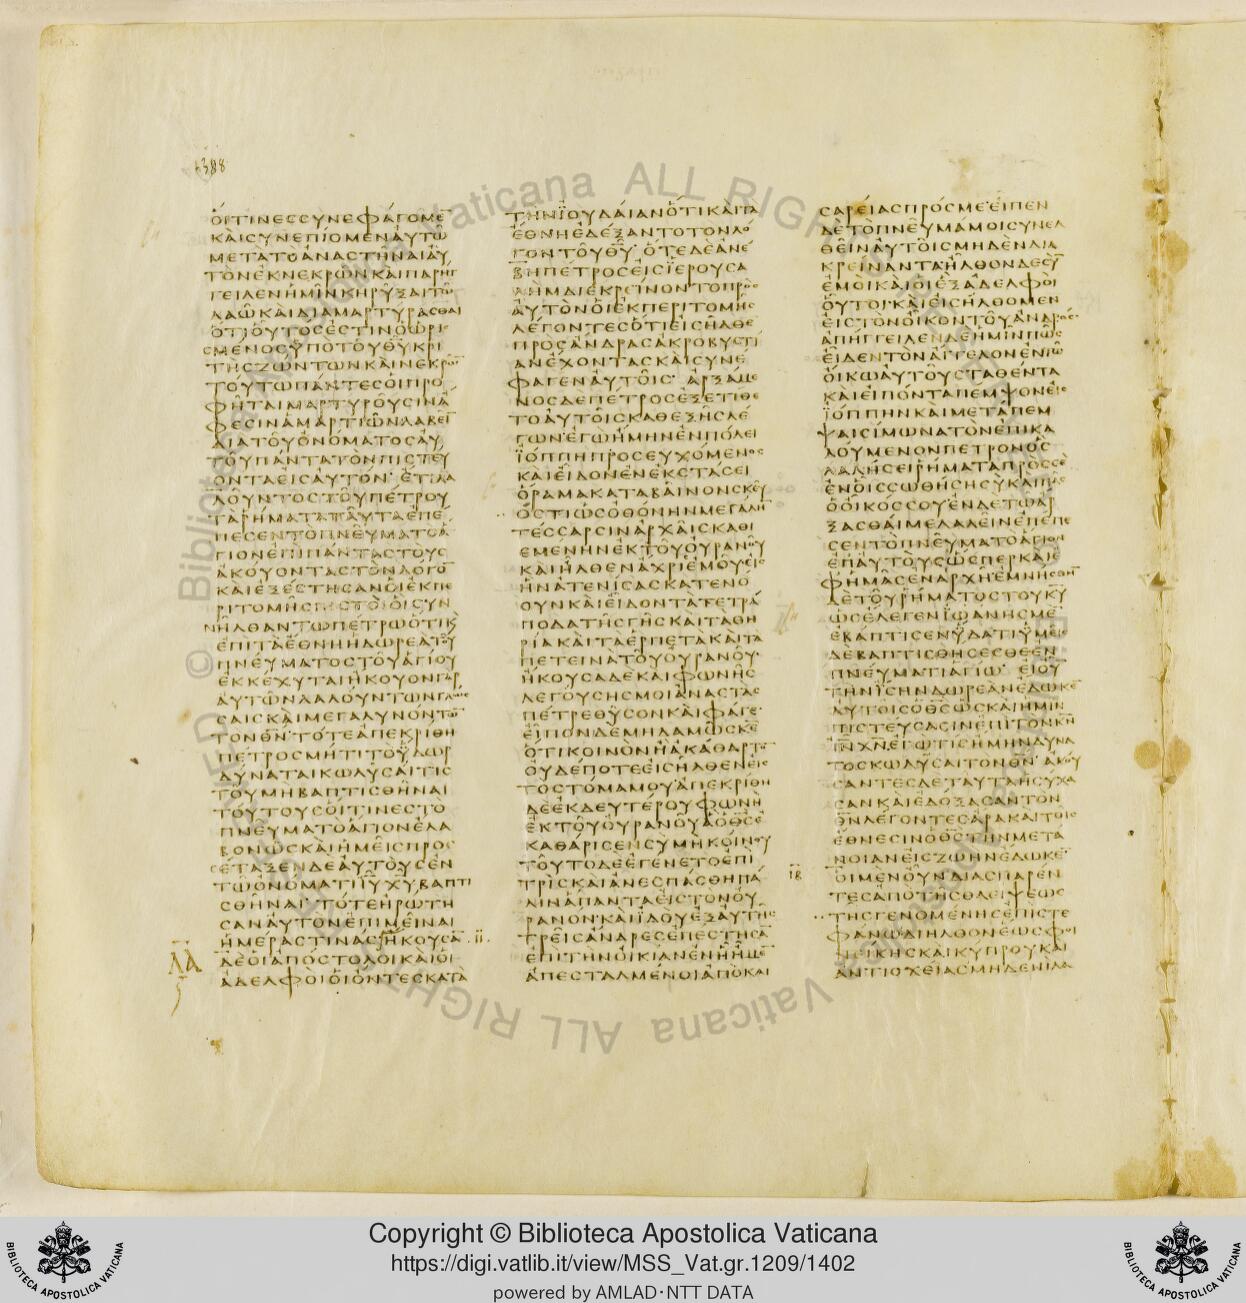 1388
ΟΙΤΙΝΕΣΣΥΝΕΦΑΓΟΜΕ
ΚΑΙΣΥΝΕΠΙΟΜΕΝΑΥΤΩ
ΜΕΤΑΤΟΑΝΑΣΤΗΝΑΙΑΥ
ΤΟΝΕΚΝΕΚΡΩΝΚΑΙΠΑΡΗΓ
ΓΕΙΛΕΝΗΜΙΝΚΗΡΥΞΑΙΤΩ
ΛΑΩΚΑΙΔΙΑΜΑΡΤΥΡΑΣΘΑΙ
ΟΤΙΟΥΤΟΣΕΣΤΙΝΟΩΡΙ
ΣΜΕΝΟΣΥΠΟΤΟΥΘΥΚΡΙ
ΤΗΣΖΩΝΤΩΝΚΑΙΝΕΚΡΩ
ΤΟΥΤΩΠΑΝΤΕΣΟΙΠΡΟ
ΦΗΤΑΙΜΑΡΤΥΡΟΥΣΙΝΑ
ΦΕΣΙΝΑΜΑΡΤΙΩΝΛΑΒΕΙ
ΔΙΑΤΟΥΟΝΟΜΑΤΟΣΑΥ
ΤΟΥΠΑΝΤΑΤΟΝΠΙΣΤΕΥ
ΟΝΤΑΕΙΣΑΥΤΟΝ ΕΤΙΛΑ
ΛΟΥΝΤΟΣΤΟΥΠΕΤΡΟΥ
ΤΑΡΗΜΑΤΑΤΑΥΤΑΕΠΕ
ΠΕΣΕΝΤΟΠΝΕΥΜΑΤΟΑ
ΓΙΟΝΕΠΙΠΑΝΤΑΣΤΟΥΣ
ΑΚΟΥΟΝΤΑΣΤΟΝΛΟΓΟ
ΚΑΙΕΞΕΣΤΗΣΑΝΟΙΕΚΠΕ
ΡΙΤΟΜΗΣΠΙΣΤΟΙΟΙΣΥΝ
ΗΛΘΑΝΤΩΠΕΤΡΩΟΤΙΚ
ΕΠΙΤΑΕΘΝΗΗΔΩΡΕΑΤΟΥ
ΠΝΕΥΜΑΤΟΣΤΟΥΑΓΙΟΥ
ΕΚΚΕΧΥΤΑΙΗΚΟΥΟΝΓΑΡ
ΑΥΤΩΝΛΑΛΟΥΝΤΩΝΓΛΩΣ
ΣΑΙΣΚΑΙΜΕΓΑΛΥΝΟΝΤΩ
ΤΟΝΘΝ ΤΟΤΕΑΠΕΚΡΙΘΗ
ΠΕΤΡΟΣΜΗΤΙΤΟΥΔΩΡ
ΔΥΝΑΤΑΙΚΩΛΥΣΑΙΤΙΣ
ΤΟΥΜΗΒΑΠΤΙΣΘΗΝΑΙ
ΤΟΥΤΟΥΣΟΙΤΙΝΕΣΤΟ
ΠΝΕΥΜΑΤΟΑΓΙΟΝΕΛΑ
ΒΟΝΩΣΚΑΙΗΜΕΙΣΠΡΟΣ
ΕΤΑΞΕΝΔΕΑΥΤΟΥΣΕΝ
ΤΩΟΝΟΜΑΤΙΙΥΧΥΒΑΠΤΙ
ΣΘΗΝΑΙ ΤΟΤΕΗΡΩΤΗ
ΣΑΝΑΥΤΟΝΕΠΙΜΕΙΝΑΙ
ΗΜΕΡΑΣΤΙΝΑΣΗΚΟΥΣΑ
ΛΑ
ΔΕΟΙΑΠΟΣΤΟΛΟΙΚΑΙΟΙ
ΑΔΕΛΦΟΙΟΙΟΝΤΕΣΚΑΤΑ
ΤΗΝΙΟΥΔΑΙΑΝΟΤΙΚΑΙΤΑ
ΕΘΝΗΕΔΕΞΑΝΤΟΤΟΝΛΟ
ΓΟΝΤΟΥΘΥ ΟΤΕΔΕΑΝΕ
ΒΗΠΕΤΡΟΣΕΙΣΙΕΡΟΥΣΑ
ΛΗΜΔΙΕΚΡΙΝΟΝΤΟΠΡΟΣ
ΑΥΤΟΝΟΙΕΚΠΕΡΙΤΟΜΗΣ
ΛΕΓΟΝΤΕΣΟΤΙΕΙΣΗΛΘΕ
ΠΡΟΣΑΝΔΡΑΣΑΚΡΟΒΥΣΤΙ
ΑΝΕΧΟΝΤΑΣΚΑΙΣΥΝΕ
ΦΑΓΕΝΑΥΤΟΙΣ ΑΡΞΑΜΕ
ΝΟΣΔΕΠΕΤΡΟΣΕΞΕΤΙΘΕ
ΤΟΑΥΤΟΙΣΚΑΘΕΞΗΣΛΕ
ΓΩΝΕΓΩΗΜΗΝΕΝΠΟΛΕΙ
ΙΟΠΠΗΠΡΟΣΕΥΧΟΜΕΝΟΣ
ΚΑΙΕΙΔΟΝΕΝΕΚΣΤΑΣΕΙ
ΟΡΑΜΑΚΑΤΑΒΑΙΝΟΝΣΚΕΥ
ΟΣΤΙΩΣΟΘΟΝΗΝΜΕΓΑΛΗ
ΤΕΣΣΑΡΣΙΝΑΡΧΑΙΣΚΑΘΙ
ΕΜΕΝΗΝΕΚΤΟΥΟΥΡΑΝΟΥ
ΚΑΙΗΛΘΕΝΑΧΡΙΕΜΟΥΕΙΣ
ΗΝΑΤΕΝΙΣΑΣΚΑΤΕΝΟ
ΟΥΝΚΑΙΕΙΔΟΝΤΑΤΕΤΡΑ
ΠΟΔΑΤΗΣΓΗΣΚΑΙΤΑΘΗ
ΡΙΑΚΑΙΤΑΕΡΠΕΤΑΚΑΙΤΑ
ΠΕΤΕΙΝΑΤΟΥΟΥΡΑΝΟΥ
ΗΚΟΥΣΑΔΕΚΑΙΦΩΝΗΣ
ΛΕΓΟΥΣΗΣΜΟΙΑΝΑΣΤΑΣ
ΠΕΤΡΕΘΥΣΟΝΚΑΙΦΑΓΕ
ΕΙΠΟΝΔΕΜΗΔΑΜΩΣΚΕ
ΟΤΙΚΟΙΝΟΝΗΑΚΑΘΑΡΤΟ
ΟΥΔΕΠΟΤΕΕΙΣΗΛΘΕΝΕΙΣ
ΤΟΣΤΟΜΑΜΟΥΑΠΕΚΡΙΘΗ
ΔΕΕΚΔΕΥΤΕΡΟΥΦΩΝΗ
ΕΚΤΟΥΟΥΡΑΝΟΥΑΟΘΣΕ
ΚΑΘΑΡΙΣΕΝΣΥΜΗΚΟΙΝΟΥ
ΤΟΥΤΟΔΕΕΓΕΝΕΤΟΕΠΙ
ΤΡΙΣΚΑΙΑΝΕΣΠΑΣΘΗΠΑ
ΛΙΝΑΠΑΝΤΑΕΙΣΤΟΝΟΥ
ΡΑΝΟΝ ΚΑΙΙΔΟΥΕΞΑΥΤΗΣ
ΤΡΕΙΣΑΝΔΡΕΣΕΠΕΣΤΗΣΑ
ΕΠΙΤΗΝΟΙΚΙΑΝΕΝΗΗΜΕ
ΑΠΕΣΤΑΛΜΕΝΟΙΑΠΟΚΑΙ
ΣΑΡΕΙΑΣΠΡΟΣΜΕΕΙΠΕΝ
ΔΕΤΟΠΝΕΥΜΑΜΟΙΣΥΝΕΛ
ΘΕΙΝΑΥΤΟΙΣΜΗΔΕΝΔΙΑ
ΚΡΕΙΝΑΝΤΑΗΛΘΟΝΔΕΣΥ
ΕΜΟΙΚΑΙΟΙΕΞΑΔΕΛΦΟΙ
ΟΥΤΟΙ ΚΑΙΕΙΣΗΛΘΟΜΕΝ
ΕΙΣΤΟΝΟΙΚΟΝΤΟΥΑΝΔΡΟΣ
ΑΠΗΓΓΕΙΛΕΝΔΕΗΜΙΝΠΩΣ
ΕΙΔΕΝΤΟΝΑΓΓΕΛΟΝΕΝΤΩ
ΟΙΚΩΑΥΤΟΥΣΤΑΘΕΝΤΑ
ΚΑΙΕΙΠΟΝΤΑΠΕΜΨΟΝΕΙΣ
ΙΟΠΠΗΝΚΑΙΜΕΤΑΠΕΜ
ΨΑΙΣΙΜΩΝΑΤΟΝΕΠΙΚΑ
ΛΟΥΜΕΝΟΝΠΕΤΡΟΝΟΣ
ΛΑΛΗΣΕΙΡΗΜΑΤΑΠΡΟΣΣΕ
ΕΝΟΙΣΣΩΘΗΣΗΣΥΚΑΙΠΑΣ
ΟΟΙΚΟΣΣΟΥΕΝΔΕΤΩΑΡ
ΞΑΣΘΑΙΜΕΛΑΛΕΙΝΕΠΕΠΕ
ΣΕΝΤΟΠΝΕΥΜΑΤΟΑΓΙΟΝ
ΕΠΑΥΤΟΥΣΩΣΠΕΡΚΑΙΕ
ΦΗΜΑΣΕΝΑΡΧΗΕΜΝΗΣΘΗ
ΔΕΤΟΥΡΗΜΑΤΟΣΤΟΥΚΥ
ΩΣΕΛΕΓΕΝΙΩΑΝΗΣΜΕ
ΕΒΑΠΤΙΣΕΝΥΔΑΤΙΥΜΕΙΣ
ΔΕΒΑΠΤΙΣΘΗΣΕΣΘΕΕΝ
ΠΝΕΥΜΑΤΙΑΓΙΩ ΕΙΟΥ
ΤΗΝΙΣΗΝΔΩΡΕΑΝΕΔΩΚΕ
ΑΥΤΟΙΣΟΘΣΩΣΚΑΙΗΜΙΝ
ΠΙΣΤΕΥΣΑΣΙΝΕΠΙΤΟΝΚΝ
ΙΝΧΝΕΓΩΤΙΣΗΜΗΝΔΥΝΑ
ΤΟΣΚΩΛΥΣΑΙΤΟΝΘΝ ΑΚΟΥ
ΣΑΝΤΕΣΔΕΤΑΥΤΑΗΣΥΧΑ
ΣΑΝΚΑΙΕΔΟΞΑΣΑΝΤΟΝ
ΘΝΛΕΓΟΝΤΕΣΑΡΑΚΑΙΤΟΙΣ
ΕΘΝΕΣΙΝΟΘΣΤΗΝΜΕΤΑ
ΝΟΙΑΝΕΙΣΖΩΗΝΕΔΩΚΕ
ΙΒ
ΟΙΜΕΝΟΥΝΔΙΑΣΠΑΡΕΝ
ΤΕΣΑΠΟΤΗΣΘΛΕΙΨΕΩΣ
ΤΗΣΓΕΝΟΜΕΝΗΣΕΠΙΣΤΕ
ΦΑΝΩΔΙΗΛΘΟΝΕΩΣΦΟΙ
ΝΕΙΚΗΣΚΑΙΚΥΠΡΟΥΚΑΙ
ΑΝΤΙΟΧΕΙΑΣΜΗΔΕΝΙΛΑ
© Biblioteca Apostolica Vaticana ALL RIGHTS RESERVED
Copyright © Biblioteca Apostolica Vaticana
https://digi.vatlib.it/view/MSS_Vat.gr.1209/1402
powered by AMLAD·NTT DATA
BIBLIOTECA APOSTOLICA VATICANA
BIBLIOTECA APOSTOLICA VATICANA